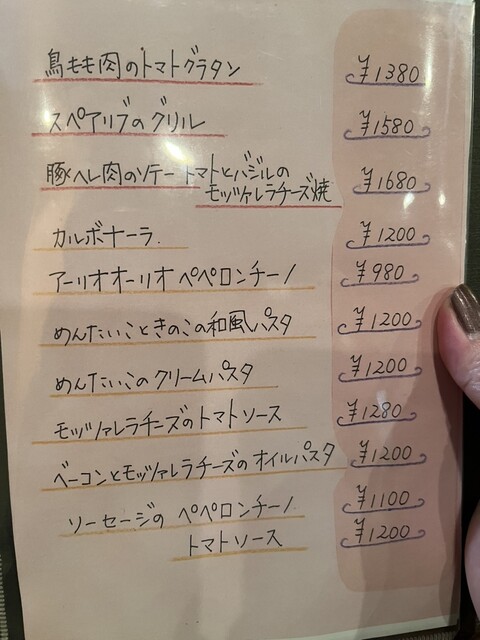 鳥もも肉のトマトグラタン ¥1380
スペアリブのグリル ¥1580
豚ヘレ肉のソテー トマトとバジルの
モッツァレラチーズ焼 ¥1680
カルボナーラ ¥1200
アーリオオーリオ ペペロンチーノ ¥980
めんたいことときのこの和風パスタ ¥1200
めんたいこのクリームパスタ ¥1200
モッツァレラチーズのトマトソース ¥1280
ベーコンとモッツァレラチーズのオイルパスタ ¥1200
ソーセージの ペペロンチーノ ¥1100
トマトソース ¥1200